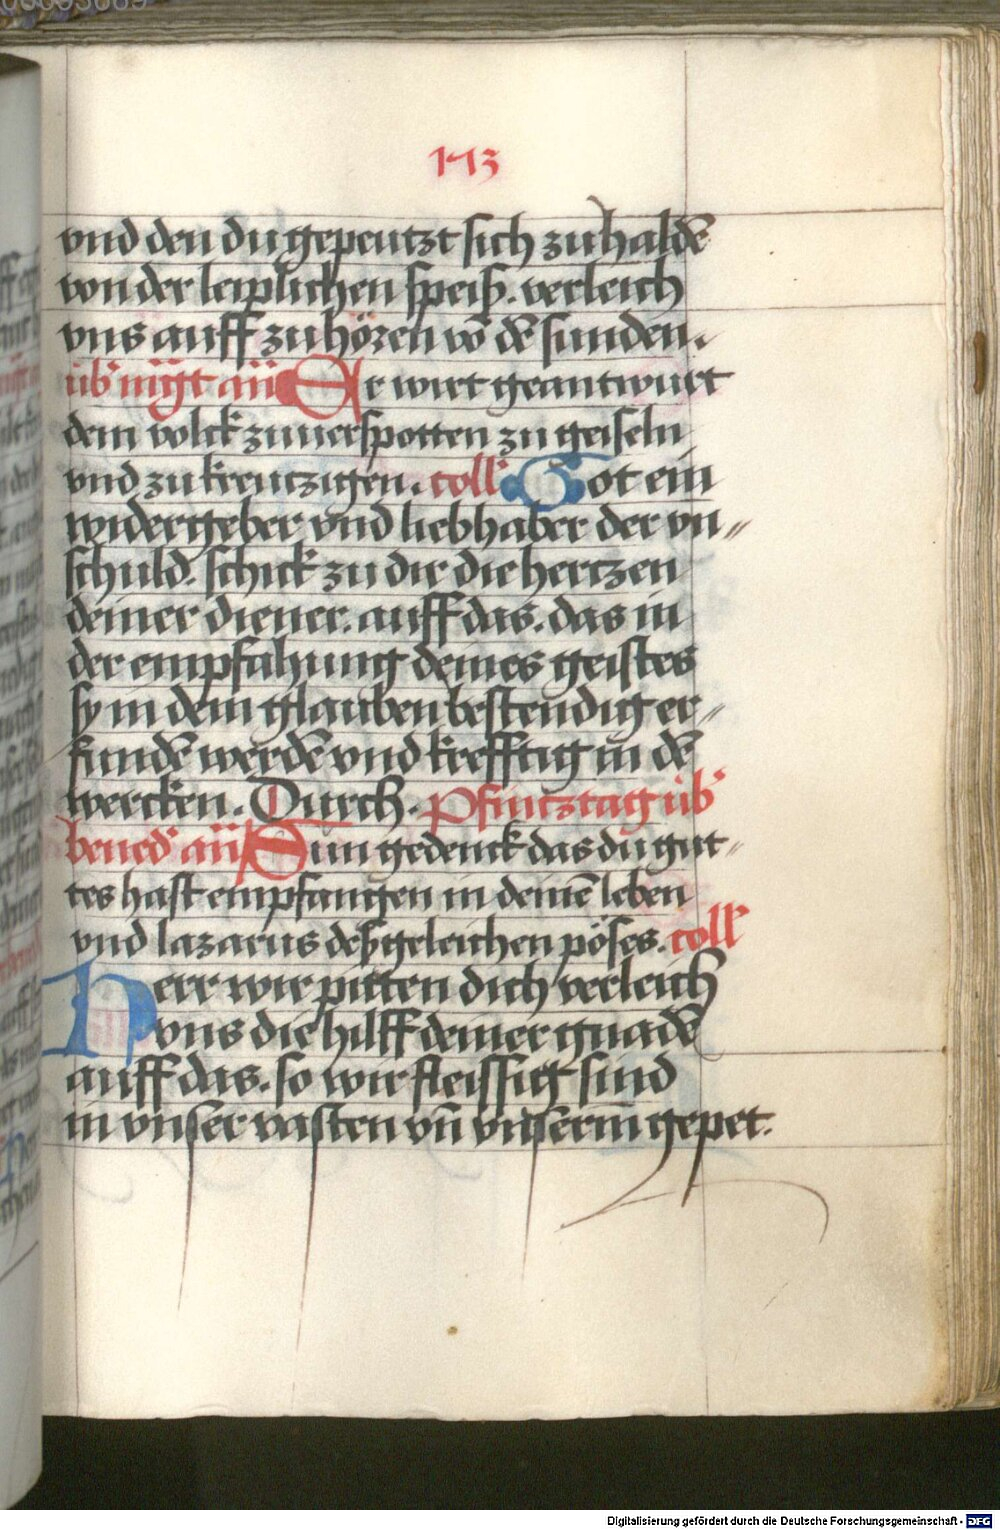 173
vnd den du gepeutzt sich zuhaldē
von der leiplichen speiß. verleich
vns auff zuhören vō dē sunden.
üb' mg̈t añ Er wirt geantwurt
dem volck zuuerspotten zu geiseln
vnd zu kreutzigen. coll' Got ein
widergeber vnd liebhaber der vn〃
schuld. schick zu dir die hertzen
deiner diener. auff das. das in
der empfahung deines geistes
sy in dem glauben bestendig er〃
fundē werdē vnd krefftig in dē
wercken. Durch. Pfintztag üb'
bened' añ Sun gedenck das du gut〃
tes hast empfangen in deinē leben
vnd lazarus deßgeleichen pöses. coll'
Herr wir pitten dich verleich
vns die hilff deiner gnadē
auff das. so wir fleissig sind
in vnser vasten vn̄ vnserm gepet.
Digitalisierung gefördert durch die Deutsche Forschungsgemeinschaft - DFG